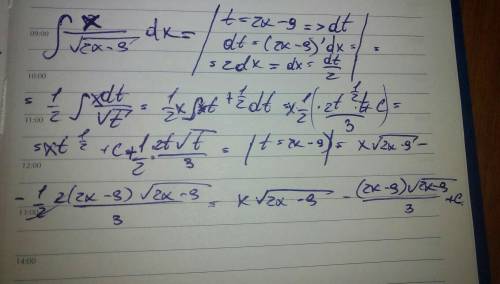 ∫ x/√(2x-9) dx = | t = 2x-9 => dt
09:00
dt = (2x-9)'dx = | =
= 2dx = dx = dt/2
10:00
= 1/2 ∫ xdt/√t = 1/2 x ∫ t^(+1/2) dt = x 1/2 ( · 2t^(1/2) · t/3 + C) =
11:00
= xt^(1/2) + C + 1/2 · 2t√t/3 = | t = 2x-9 | = x√(2x-9) -
12:00
- 1/2 2(2x-9)√(2x-9)/3 = x√(2x-9) - (2x-9)√(2x-9)/3 + C
13:00
14:00